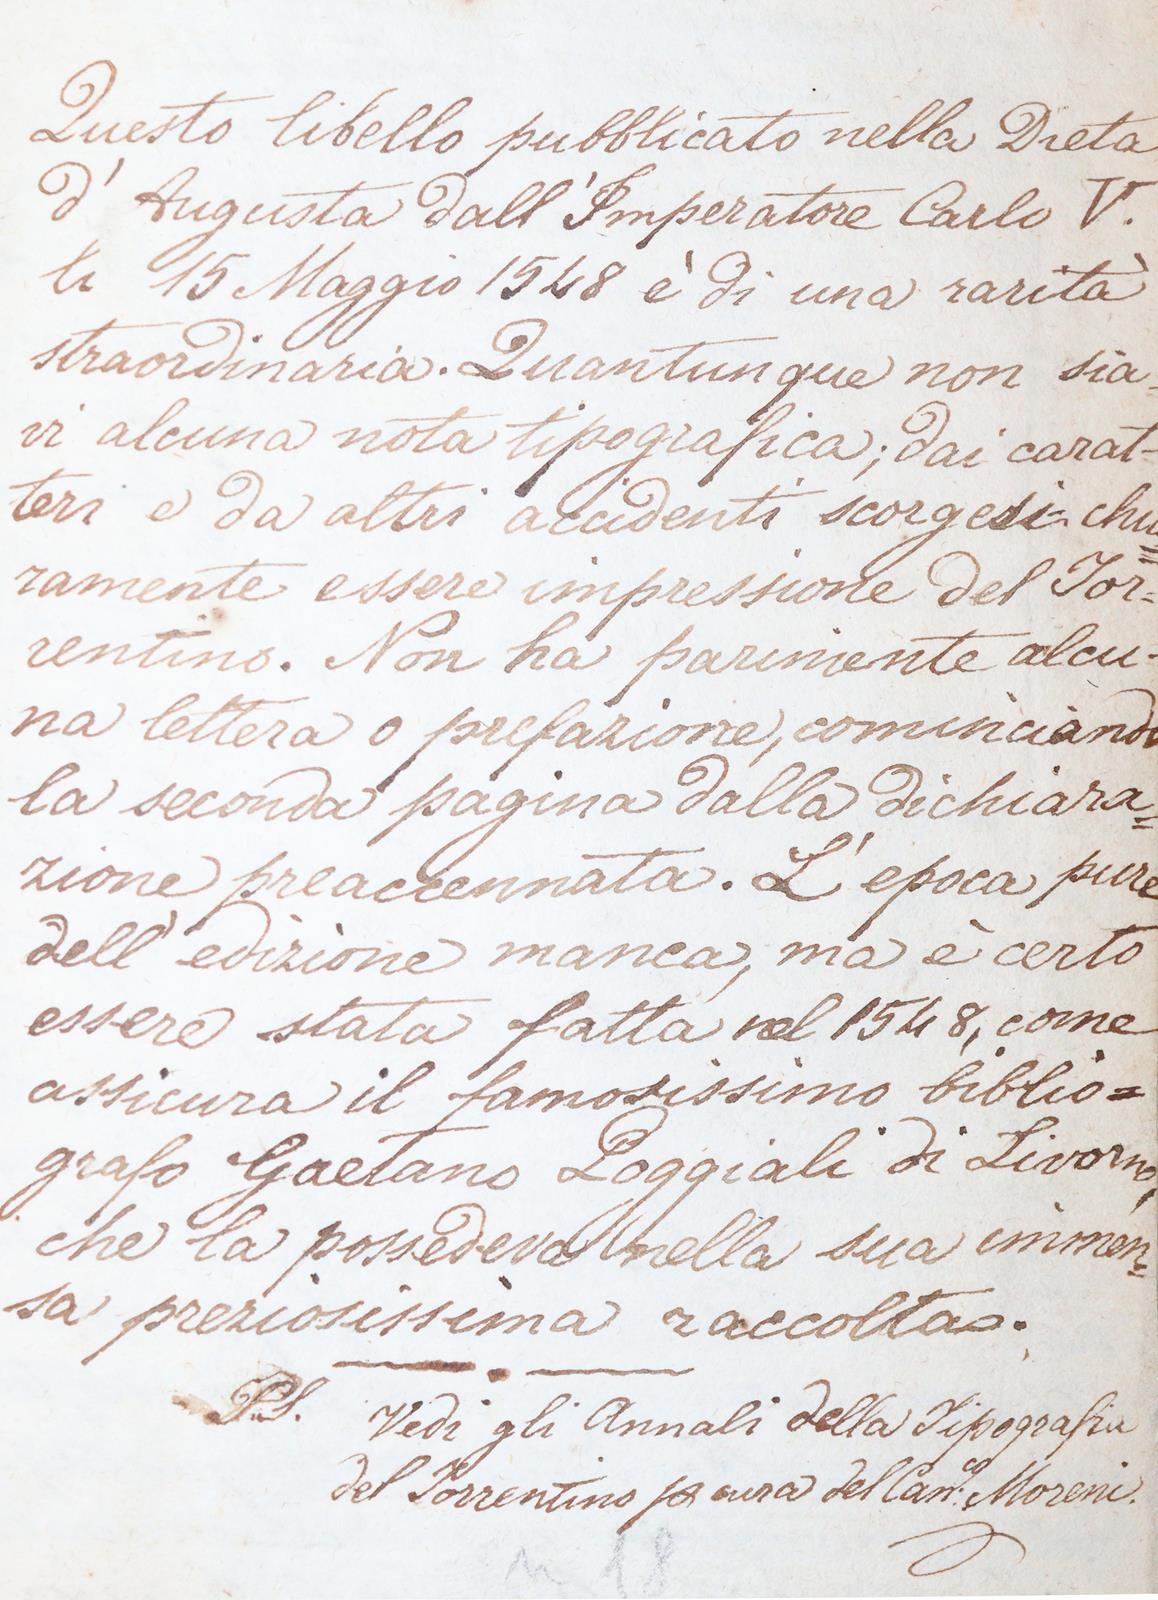 Questo libello pubblicato nella Dieta
d' Augusta dall' Imperatore Carlo V.
li 15 Maggio 1548 è di una rarità
straordinaria. Quantunque non sia-
vi alcuna nota tipografica; dai carat-
teri e da altri accidenti scorgesi chia=
ramente essere impressione del Tor=
rentino. Non ha parimente alcu-
na lettera o prefazione, cominciando
la seconda pagina dalla dichiara=
zione preaccennata. L' epoca pure
dell' edizione manca, ma è certo
essere stata fatta nel 1548, come
assicura il famosissimo biblio=
grafo Gaetano Poggiali di Livorno,
che la possedeva nella sua immen=
sa preziosissima raccolta.
P.S. Vedi gli Annali della Tipografia
del Torrentino p cura del Can.co Moreni.
n 18